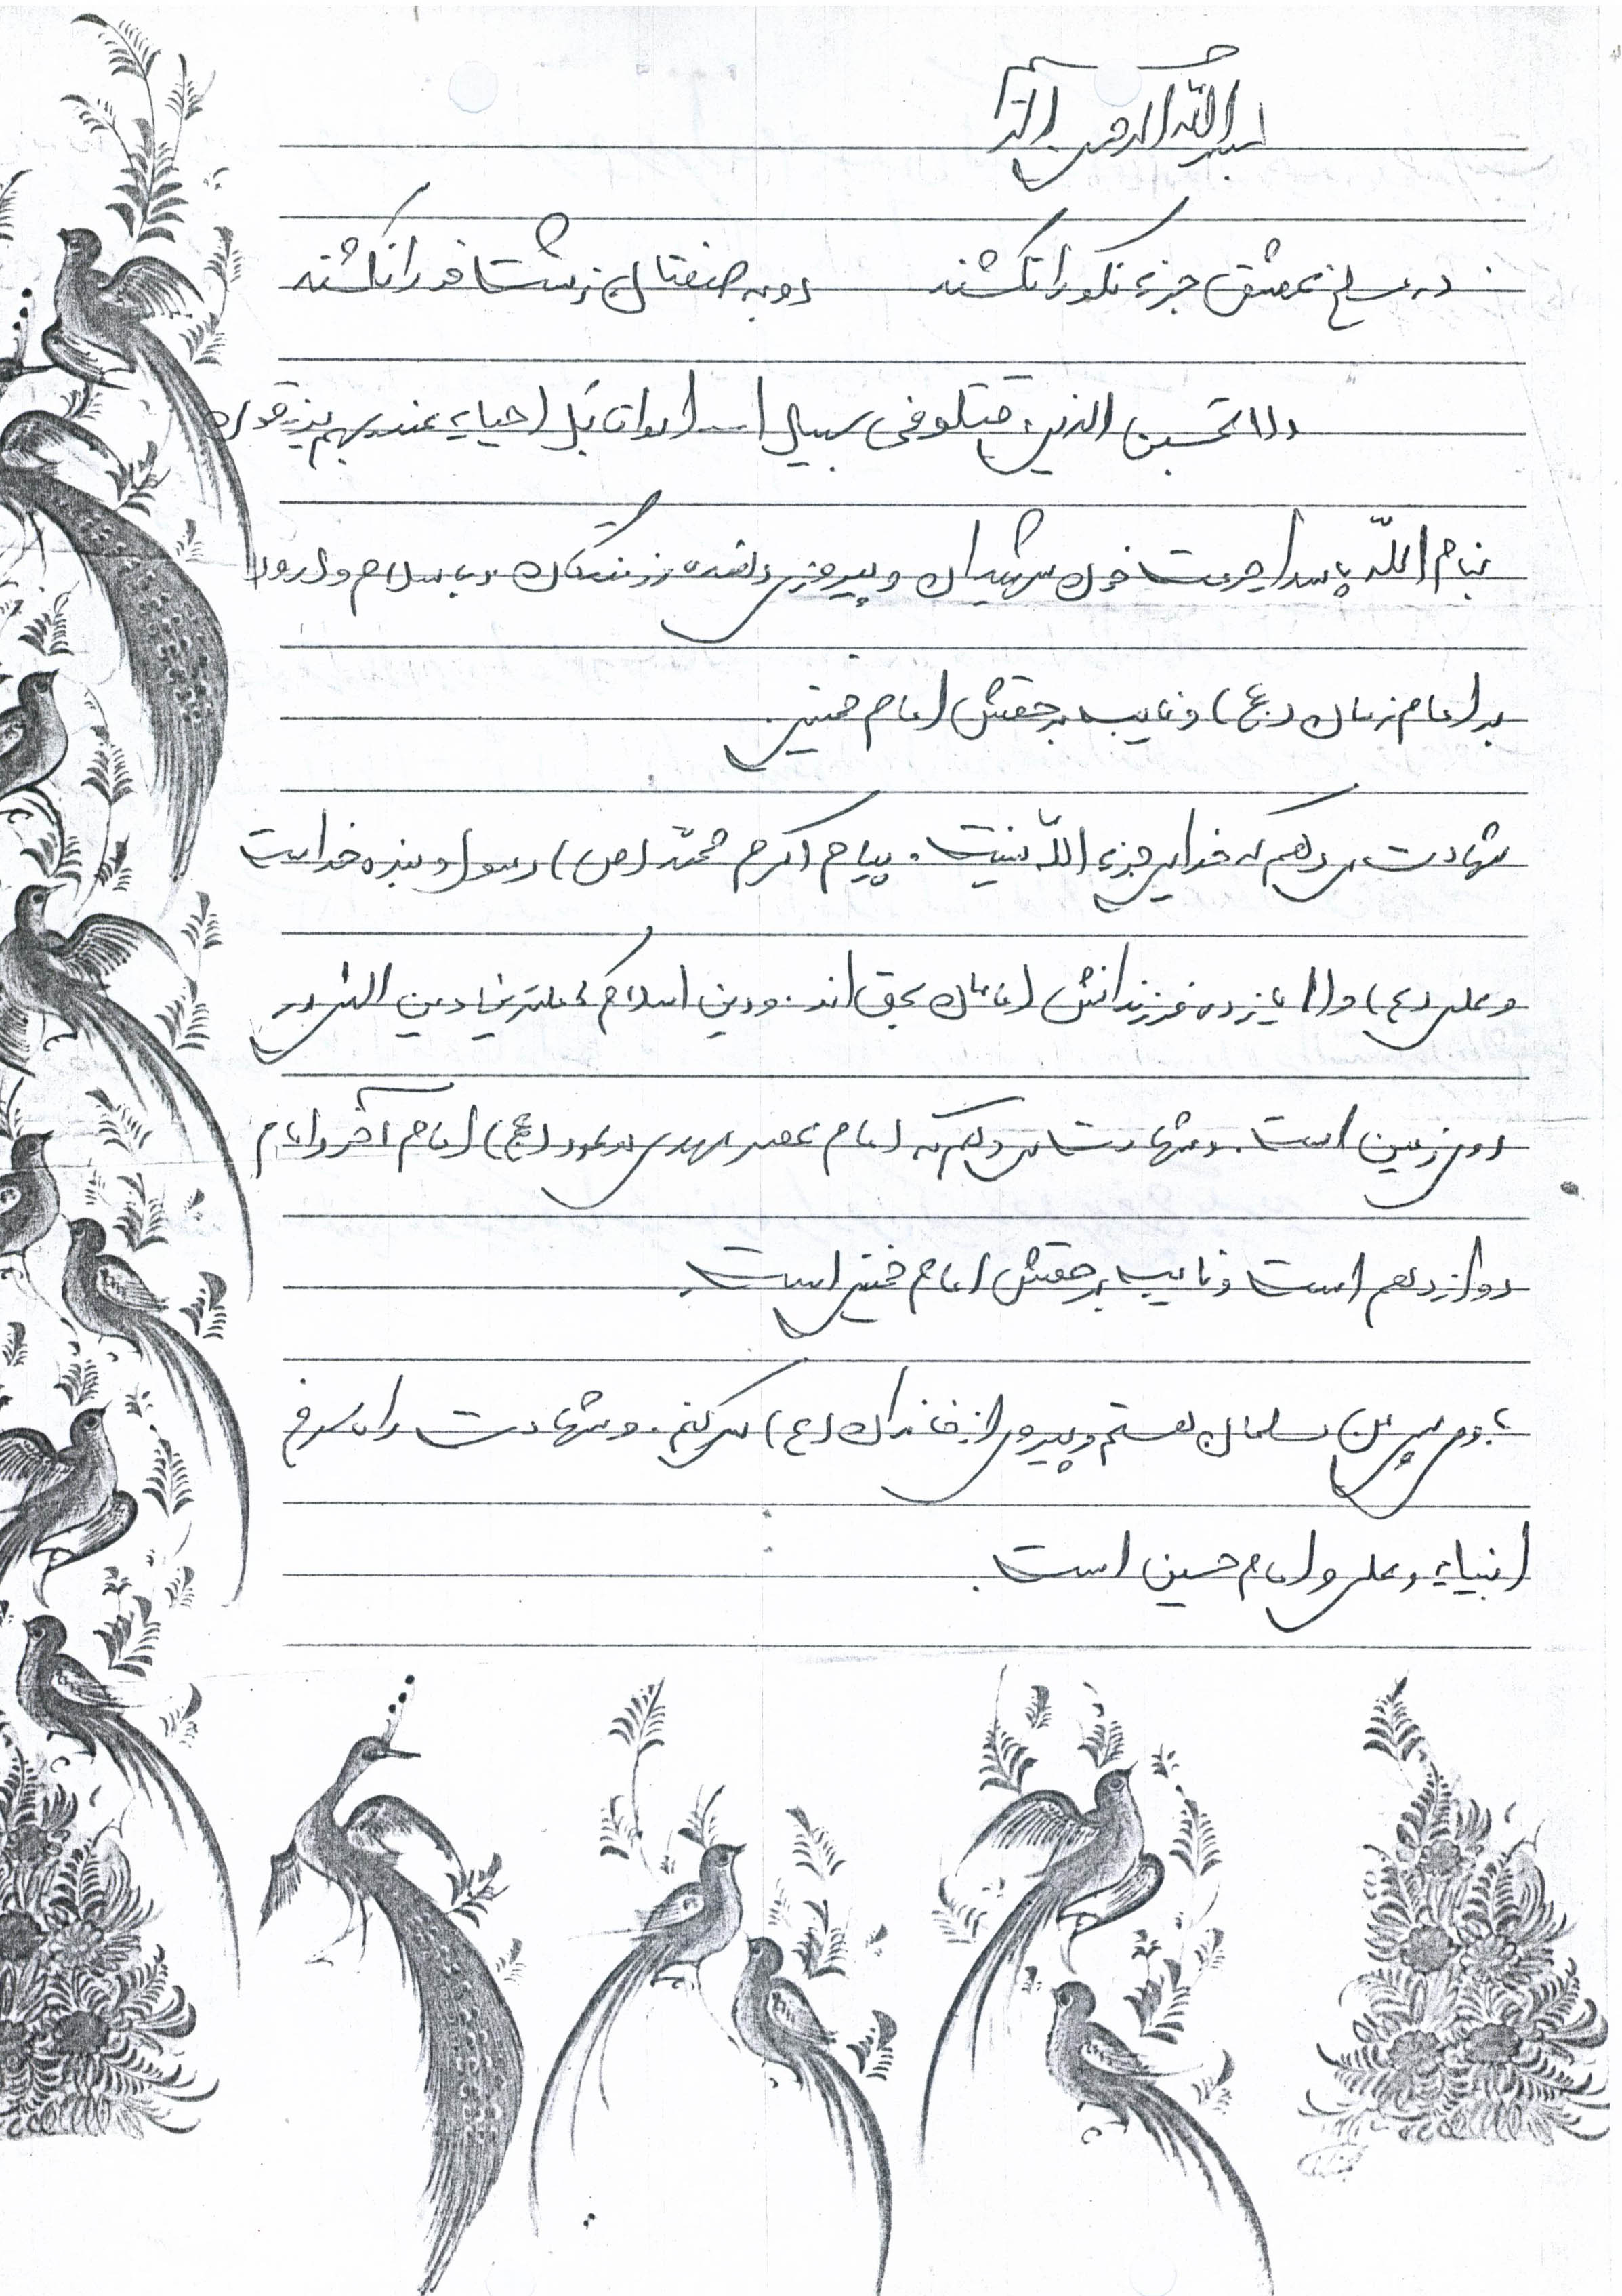 بسم الله الرحمن الرحیم
در مسلخ عشق جزء نکو را نکشند روبه صفتان زشت خو را نکشند
ولا تحسبن الذین قتلو فی سبیل الله امواتا بل احیاء عند ربهم یرزقون
بنام الله پاسدار حرمت خون شهیدان و پیروزی دهنده رزمندگان و با سلام و درود
بر امام زمان (عج) و نایب برحقش امام خمینی
شهادت می دهم که خدایی جزء الله نیست. پیام اکرم محمّد (ص) رسول و بنده خداست
و علی (ع) و ۱۱ یازده فرزندانش امامان بحق اند. و دین اسلام کاملترین دین الهی در
روی زمین است. و شهادت می دهم که امام عصر مهدی موعود (عج) امام آخر و امام
دوازدهم است و نایب برحقش امام خمینی است.
پس من مسلمان هستم و پیروی از خاندان (ع) می کنم. و شهادت راه سرخ
انبیاء و علی و امام حسین است.